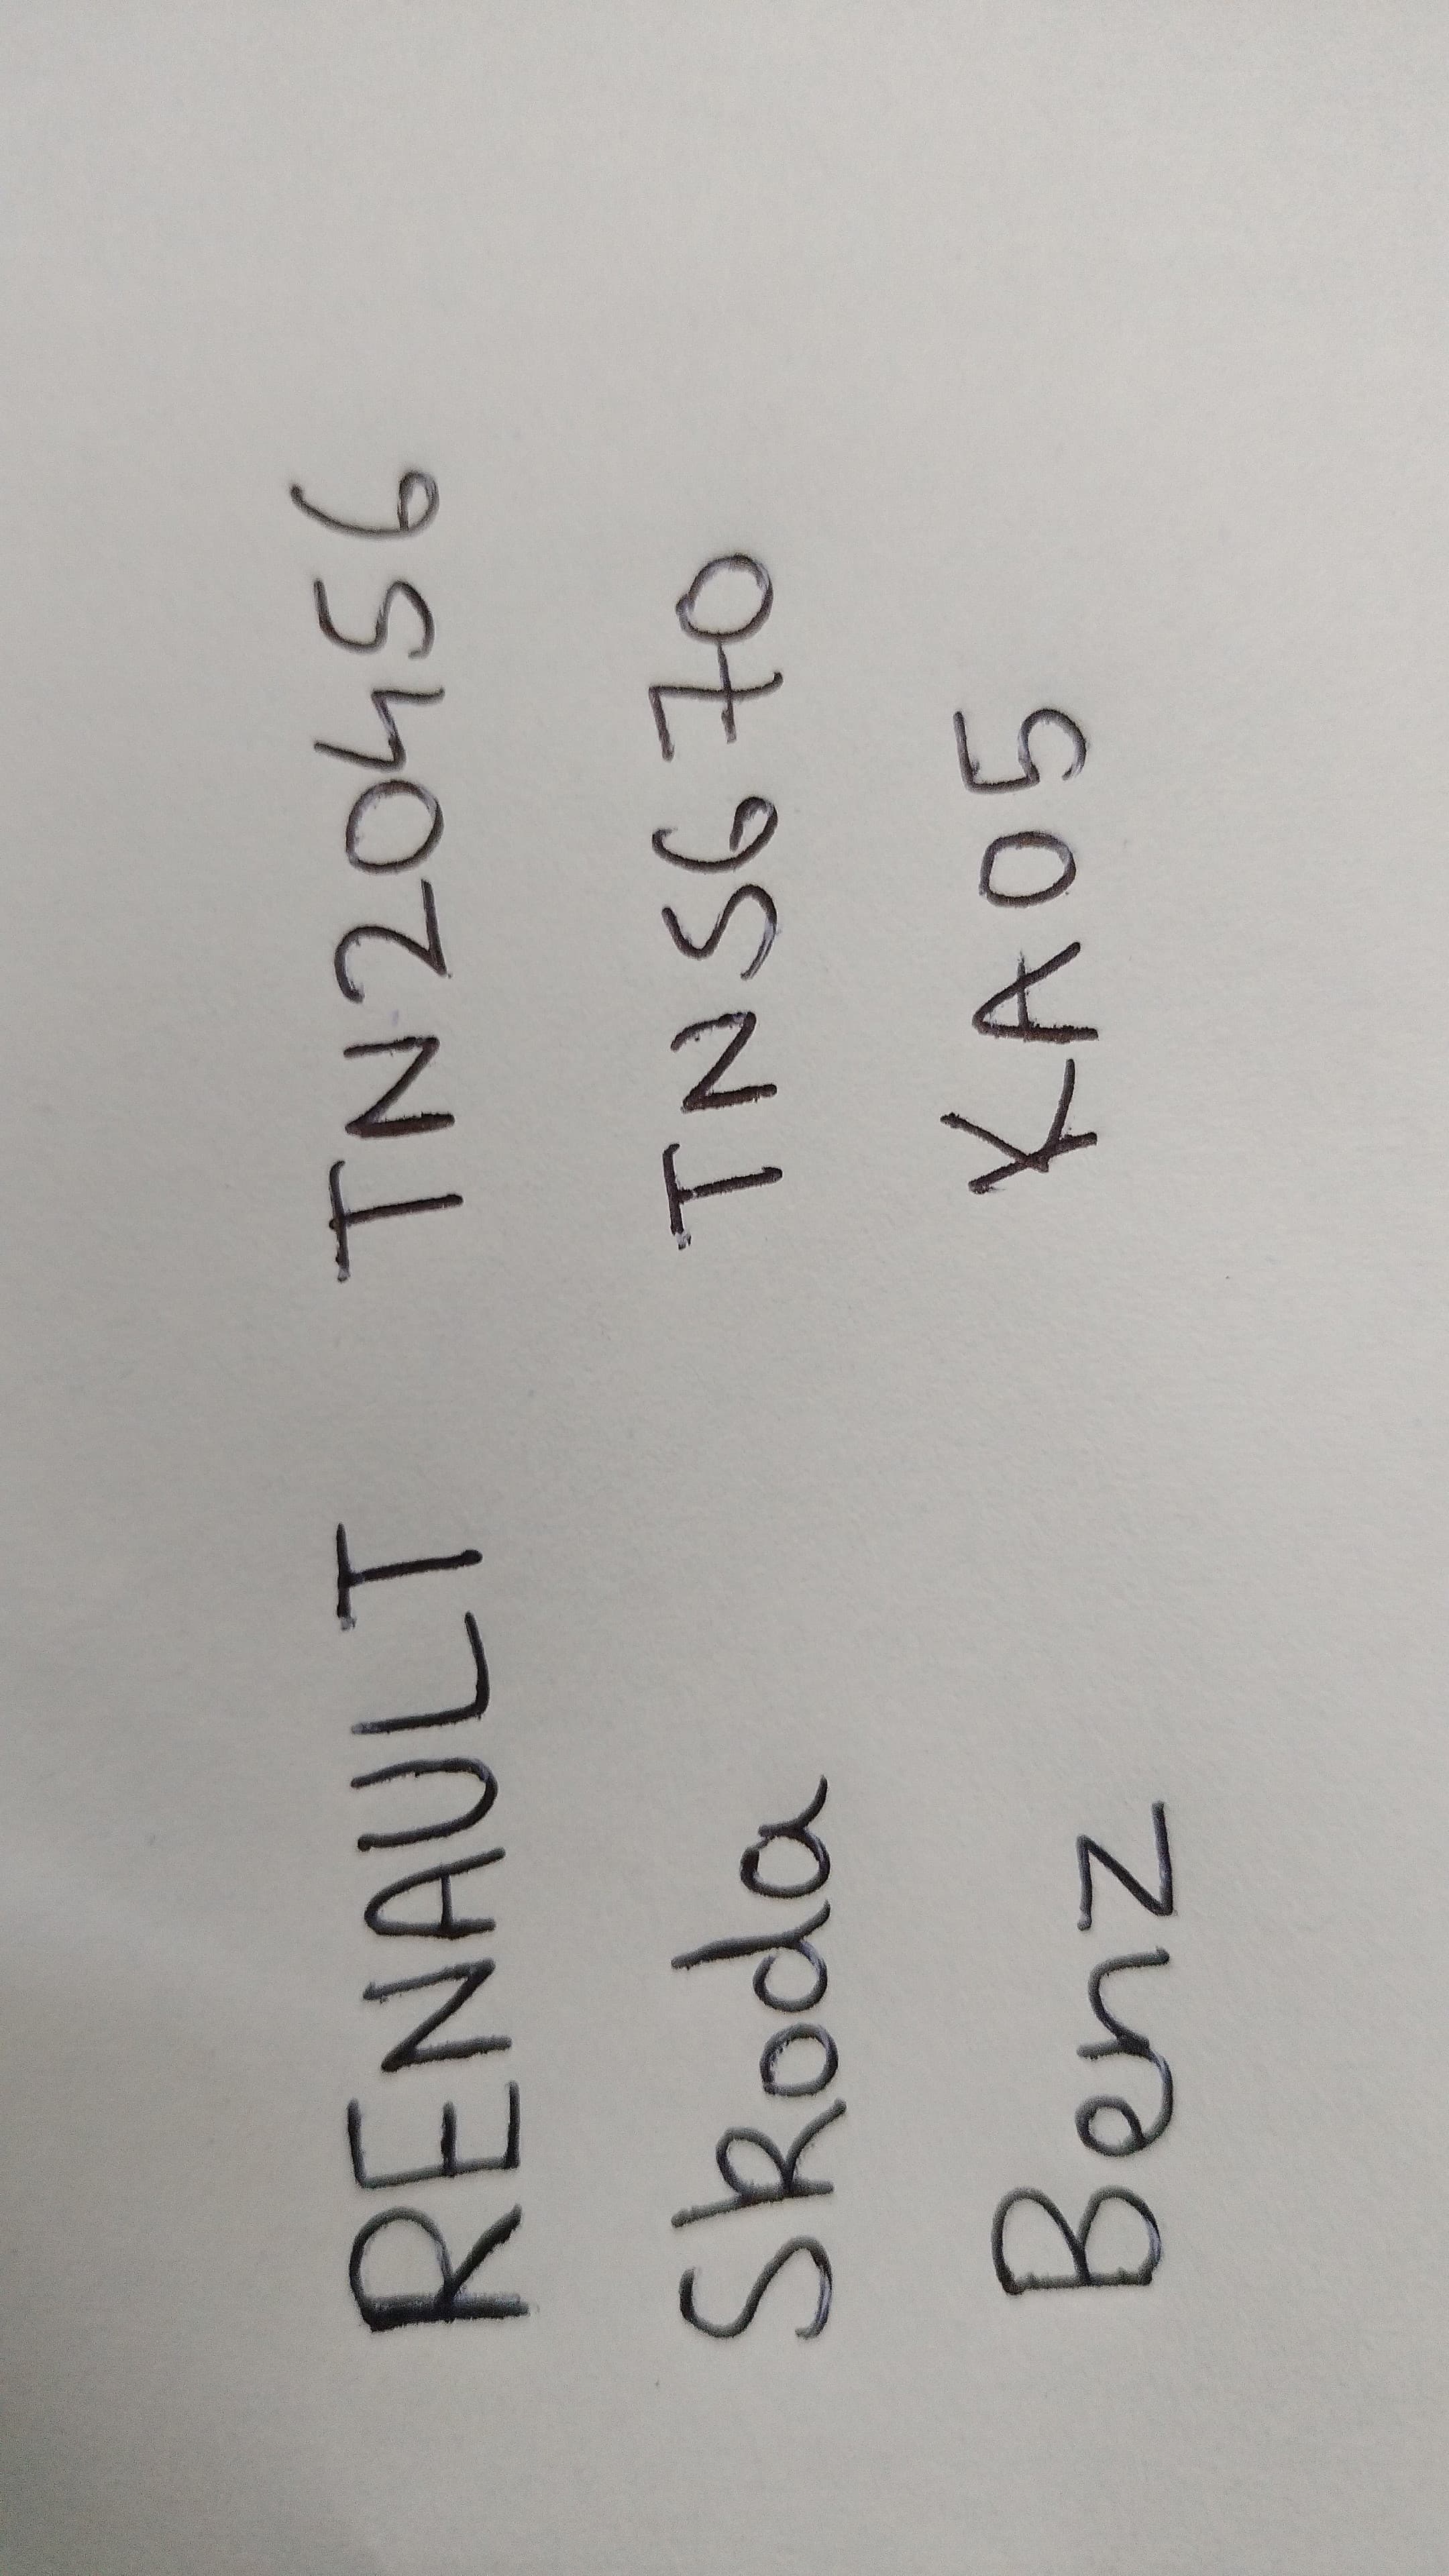 RENAULT TN20456
Skoda TN5670
Benz KA05